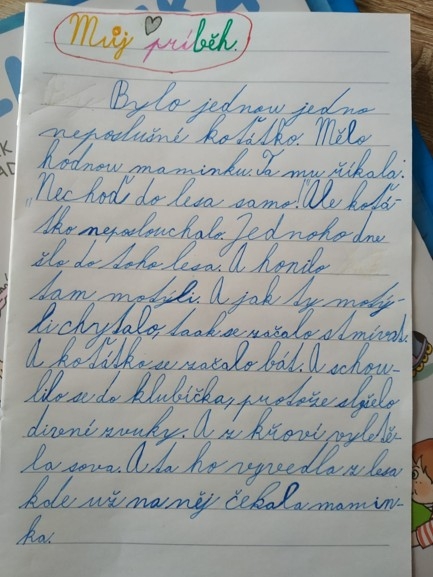 Můj příběh.
Bylo jednou jedno
neposlušné koťátko. Mělo
hodnou maminku. Ta mu říkala:
„Nechoď do lesa samo." Ale koťá-
tko neposlouchalo. Jednoho dne
šlo do toho lesa. A honilo
tam motýli. A jak ty motý-
li chytalo, taak se začalo stmívat.
A koťátko se začalo bát. A schou-
lilo se do klubíčka, protože slyšelo
divné zvuky. A z křoví vyletě-
la sova. A ta ho vyvedla z lesa
kde už na něj čekala mamin-
ka.